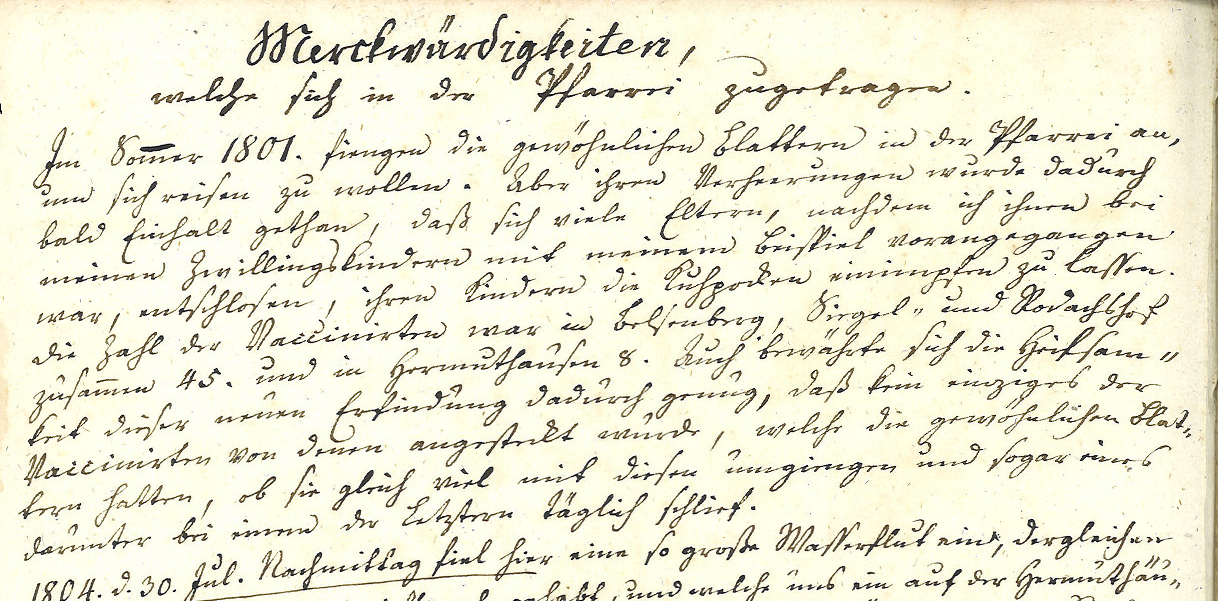 Merckwürdigkeiten,
welche sich in der Pfarrei zugetragen.
Im Som̅er 1801. fiengen die gewöhnlichen Blattern in der Pfarrei an,
um sich reisen zu wollen. Aber ihren Verheerungen wurde dadurch
bald Einhalt gethan, daß sich viele Eltern, nachdem ich ihnen bei
meinen Zwillingskindern mit meinem Beispiel vorangegangen
war, entschlosen, ihren Kindern die Kuhpocken einimpfen zu lassen.
Die Zahl der Vaccinirten war in Belsenberg, Siegel- und Rodachshof
zusam̅en 45. und in Hermuthausen 8. Auch bewährte sich die Heilsam-
keit dieser neuen Erfindung dadurch genug, daß kein einziges der
Vaccinirten von denen angesteckt wurde, welche die gewöhnlichen Blat-
tern hatten, ob sie gleich viel mit diesen umgiengen und sogar eines
darunter bei einem der Letztern täglich schlief.
1804. d. 30. Jul. Nachmittag fiel hier eine so große Wasserflut ein, dergleichen
gehabt, und welche uns ein auf der Hermuthäu-